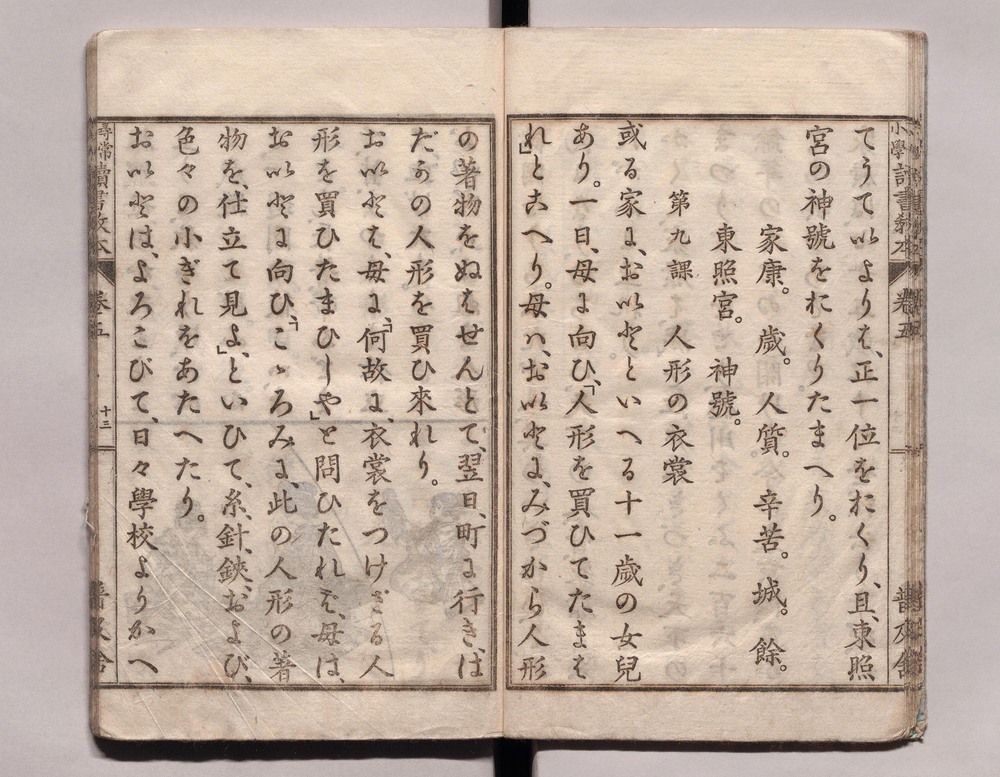 てうていよりは、正一位をおくり、且、東照
宮の神號をおくりたまへり。
家康。歳。人質。辛苦。城。餘。
東照宮。神號。
第九課 人形の衣裳
或る家に、お以登といへる十一歳の女兒
あり。一日、母に向ひ、「人形を買ひてたまは
れ」とこへり。母ハ、お以登に、みづから人形
の著物をぬはせんとて、翌日、町に行き、は
だかの人形を買ひ來れり。
お以登は、母に、「何故に、衣裳をつけざる人
形を買ひたまひしや」と問ひたれば、母は、
お以登に向ひ、「こゝろみに、此の人形の著
物を、仕立て見よ」といひて、糸、針、鋏、および、
色々の小ぎれをあたへたり。
お以登は、よろこびて、日々學校よりかへ
尋常讀書教本
卷五
十三
普及舍